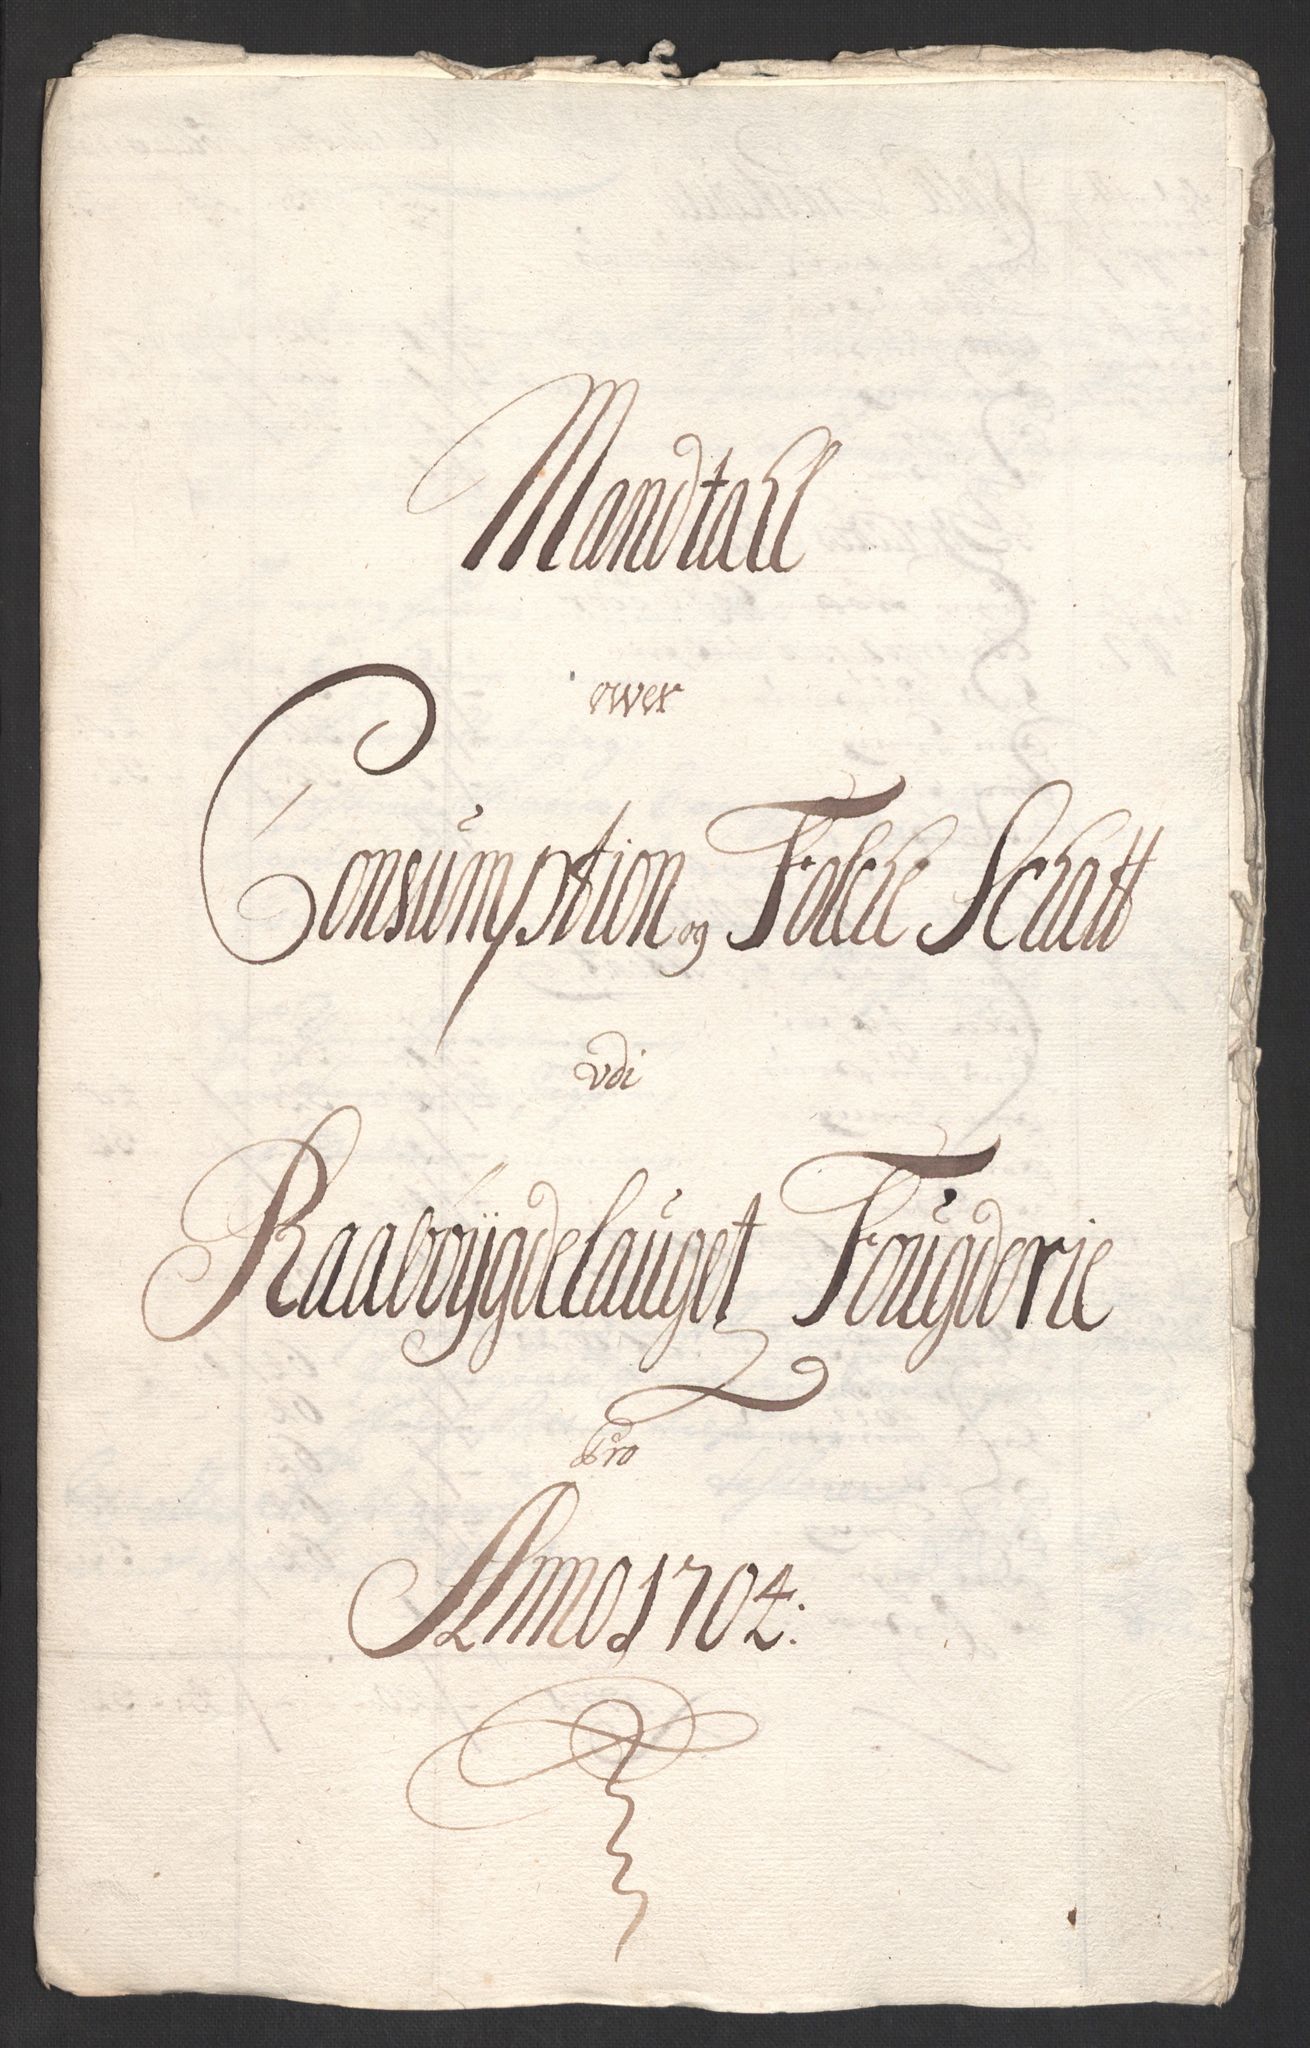 Mandtall
ower
Consumption og Folcke Schatt
vdi
Raabÿgdelauget Fougderie
Pro
Anno 1704.